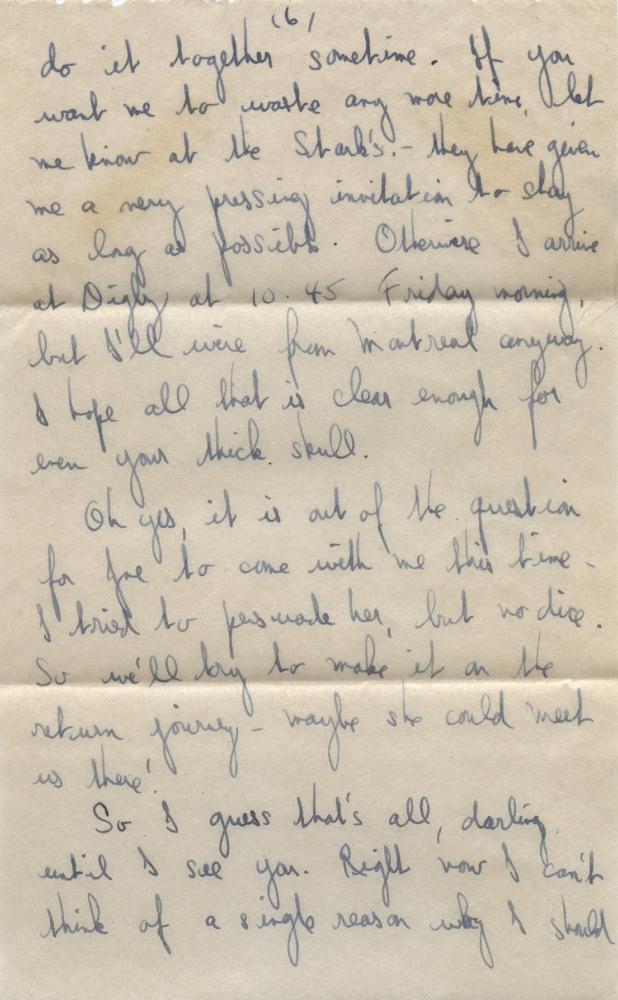 (6)
do it together sometime. If you
want me to waste any more time, let
me know at the Stark's. - they have given
me a very pressing invitation to stay
as long as possible. Otherwise I arrive
at Digby at 10.45 Friday morning,
but I'll wire from Montreal anyway.
I hope all that is clear enough for
even your thick skull.
Oh yes, it is out of the question
for to come with me this time -
I tried to persuade her, but no dice.
So we'll try to make it on the
return journey - maybe she could meet
us there!
So I guess that's all, darling,
until I see you. Right now I can't
think of a single reason why I should